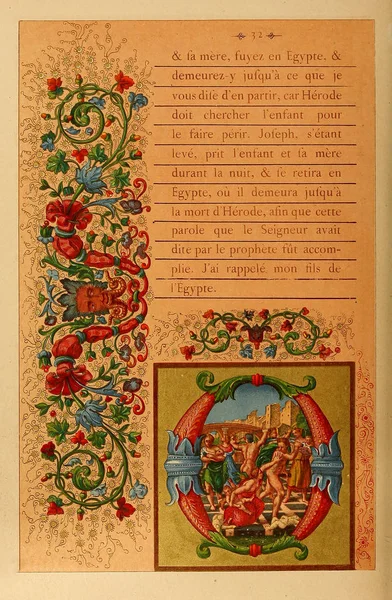 32
& ſa mère, fuyez en Egypte, &
demeurez-y juſqu'à ce que je
vous diſe d'en partir, car Hérode
doit chercher l'enfant pour
le faire périr. Joſeph, s'étant
levé, prit l'enfant et ſa mère
durant la nuit, & ſe retira en
Egypte, où il demeura juſqu'à
la mort d'Hérode, afin que cette
parole que le Seigneur avait
dite par le prophete fût accom-
plie. J'ai rappelé mon fils de
l'Egypte.